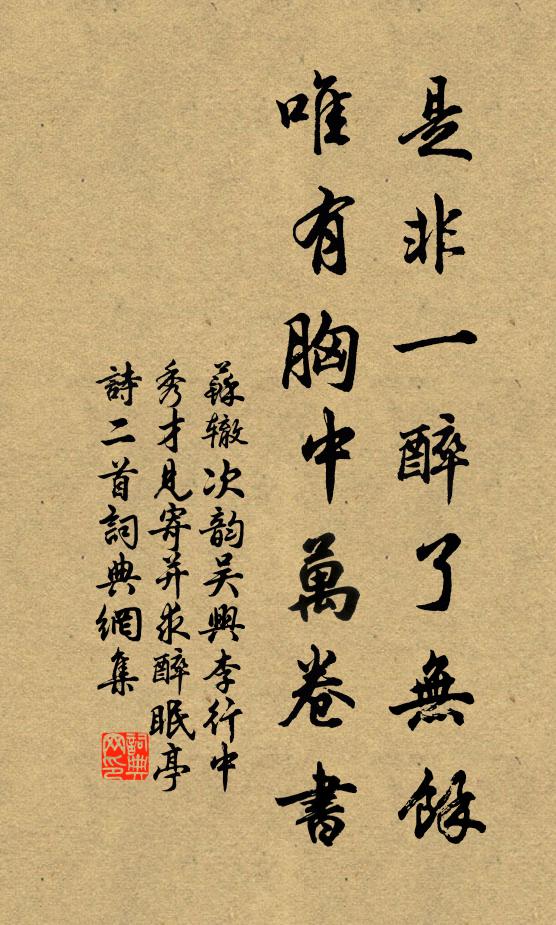 是非一醉了無餘
唯有胸中萬卷書
蘇辙次韵吴興李行中
秀才見寄并求醉眠亭
詩二首詞典網集
詞典
网印